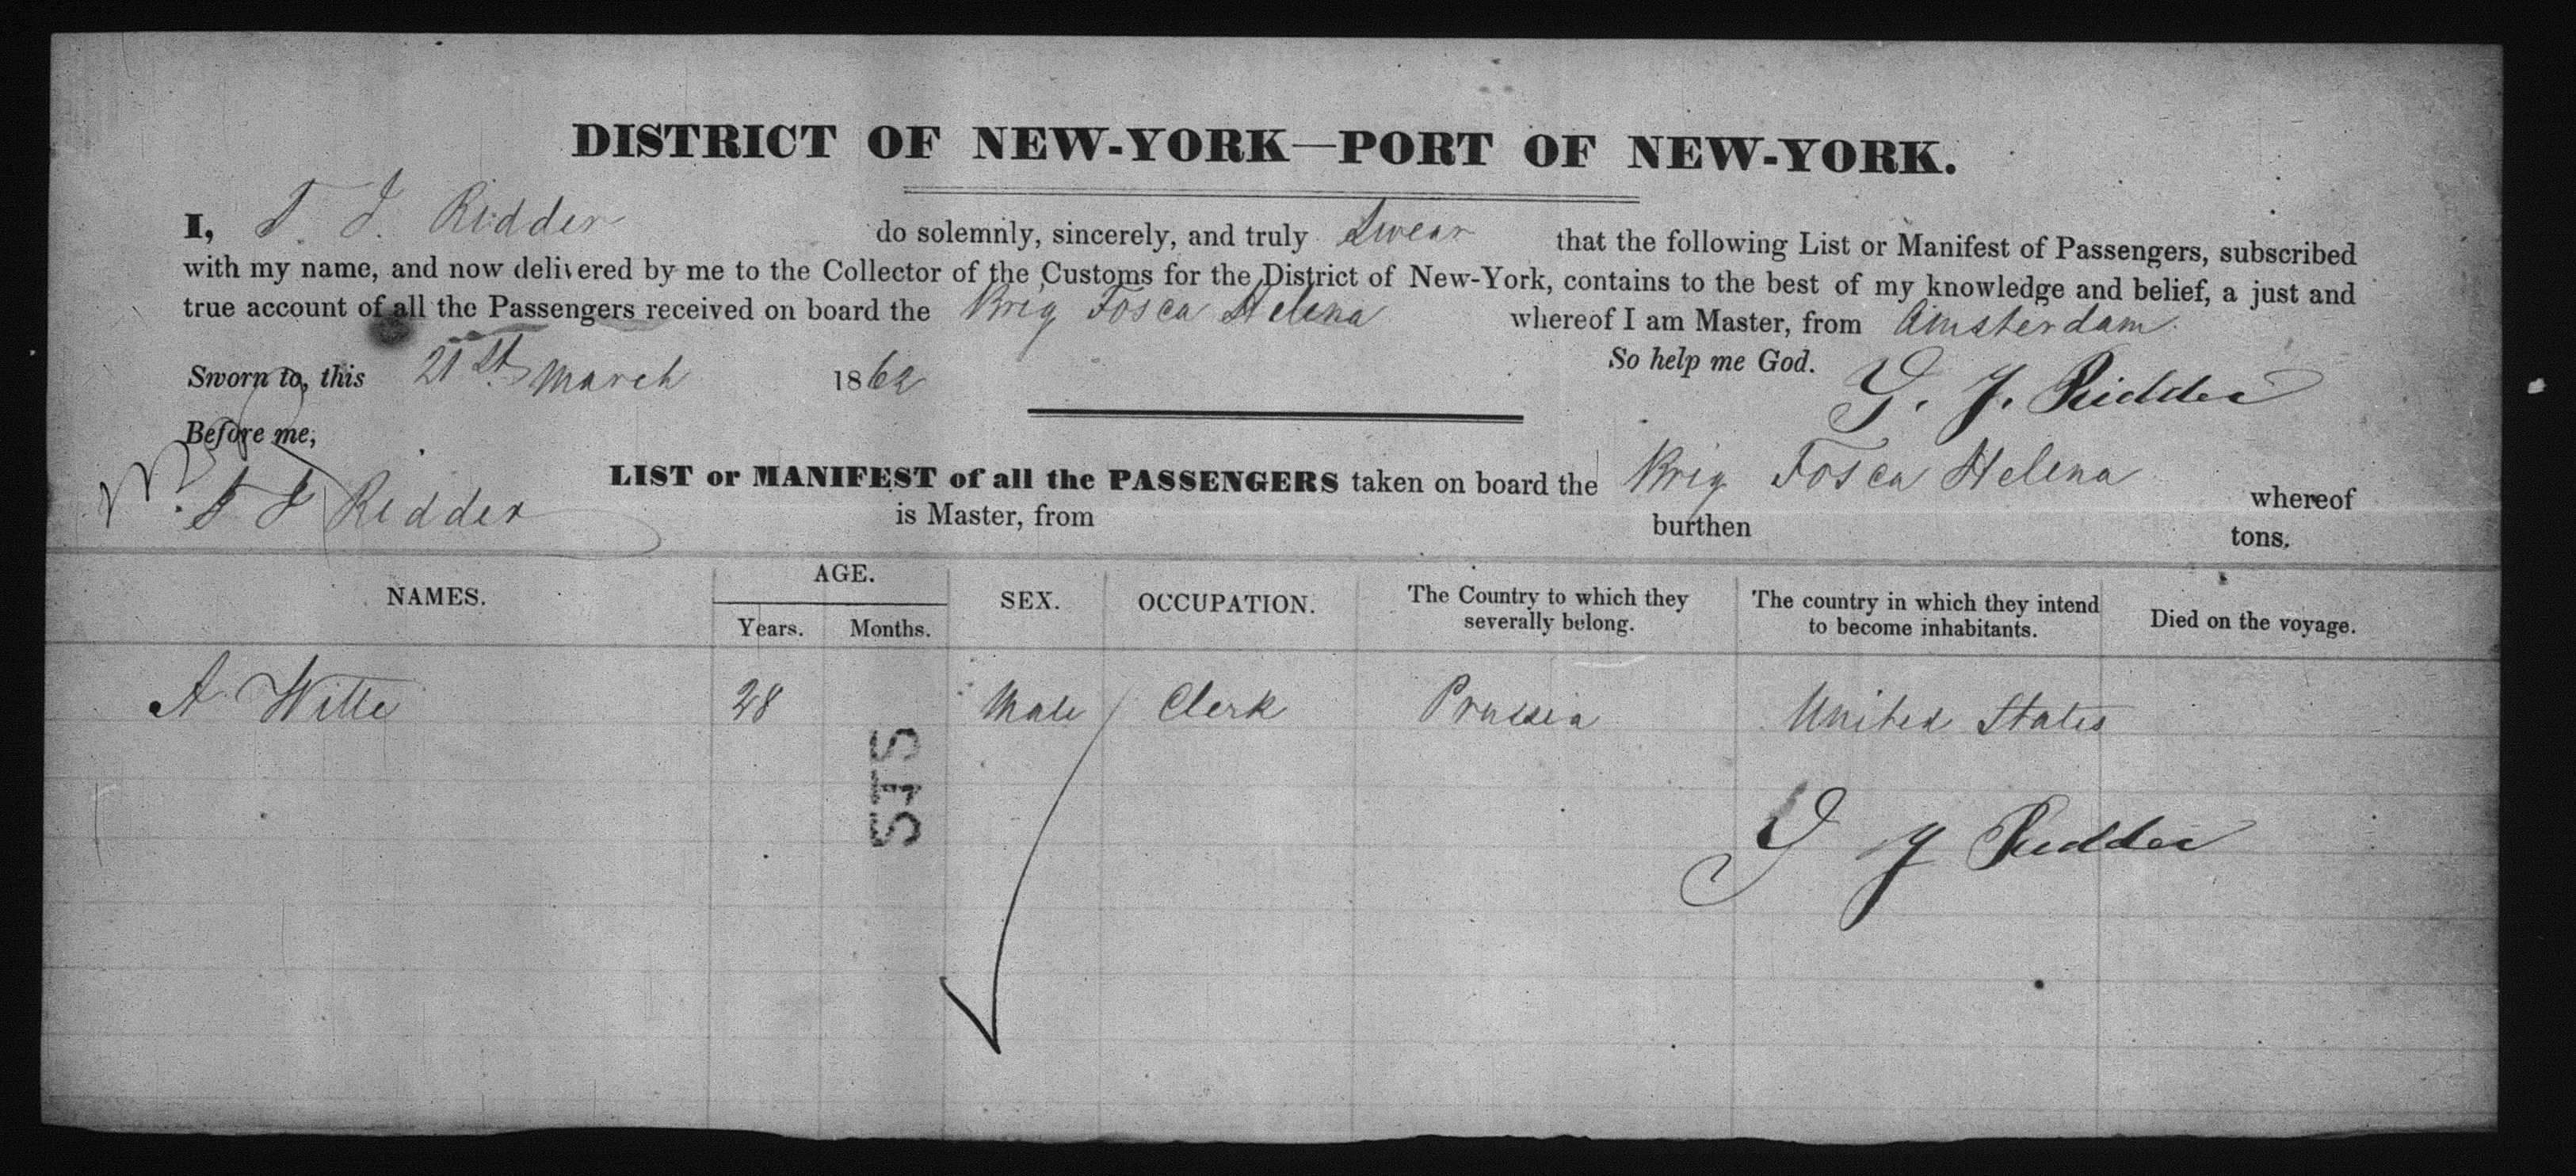 DISTRICT OF NEW-YORK—PORT OF NEW-YORK.
I, T. J. Ridder do solemnly, sincerely, and truly Swear that the following List or Manifest of Passengers, subscribed
with my name, and now delivered by me to the Collector of the Customs for the District of New-York, contains to the best of my knowledge and belief, a just and
true account of all the Passengers received on board the Brig Fosca Helena whereof I am Master, from Amsterdam.
Sworn to, this 21st March 1862 So help me God. G. J. Ridder
Before me,
T J Ridder LIST or MANIFEST of all the PASSENGERS taken on board the Brig Fosca Helena whereof
is Master, from burthen tons.
NAMES. AGE. SEX. OCCUPATION. The Country to which they severally belong. The country in which they intend to become inhabitants. Died on the voyage.
Years. Months.
A Witte 28 Male Clerk Prussia United States
515
G J Ridder